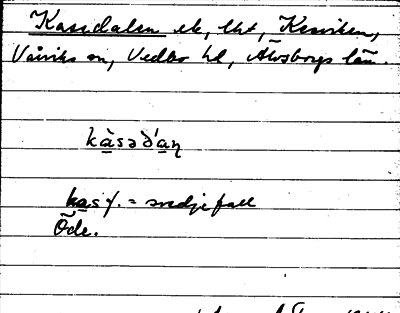 Kasedalen ek, tht, Kesviken,
Vårviks sn, Vedbo hd, Älvsborgs län.
kàsəðʹaņ
kas f. = svedjefall
Öde.